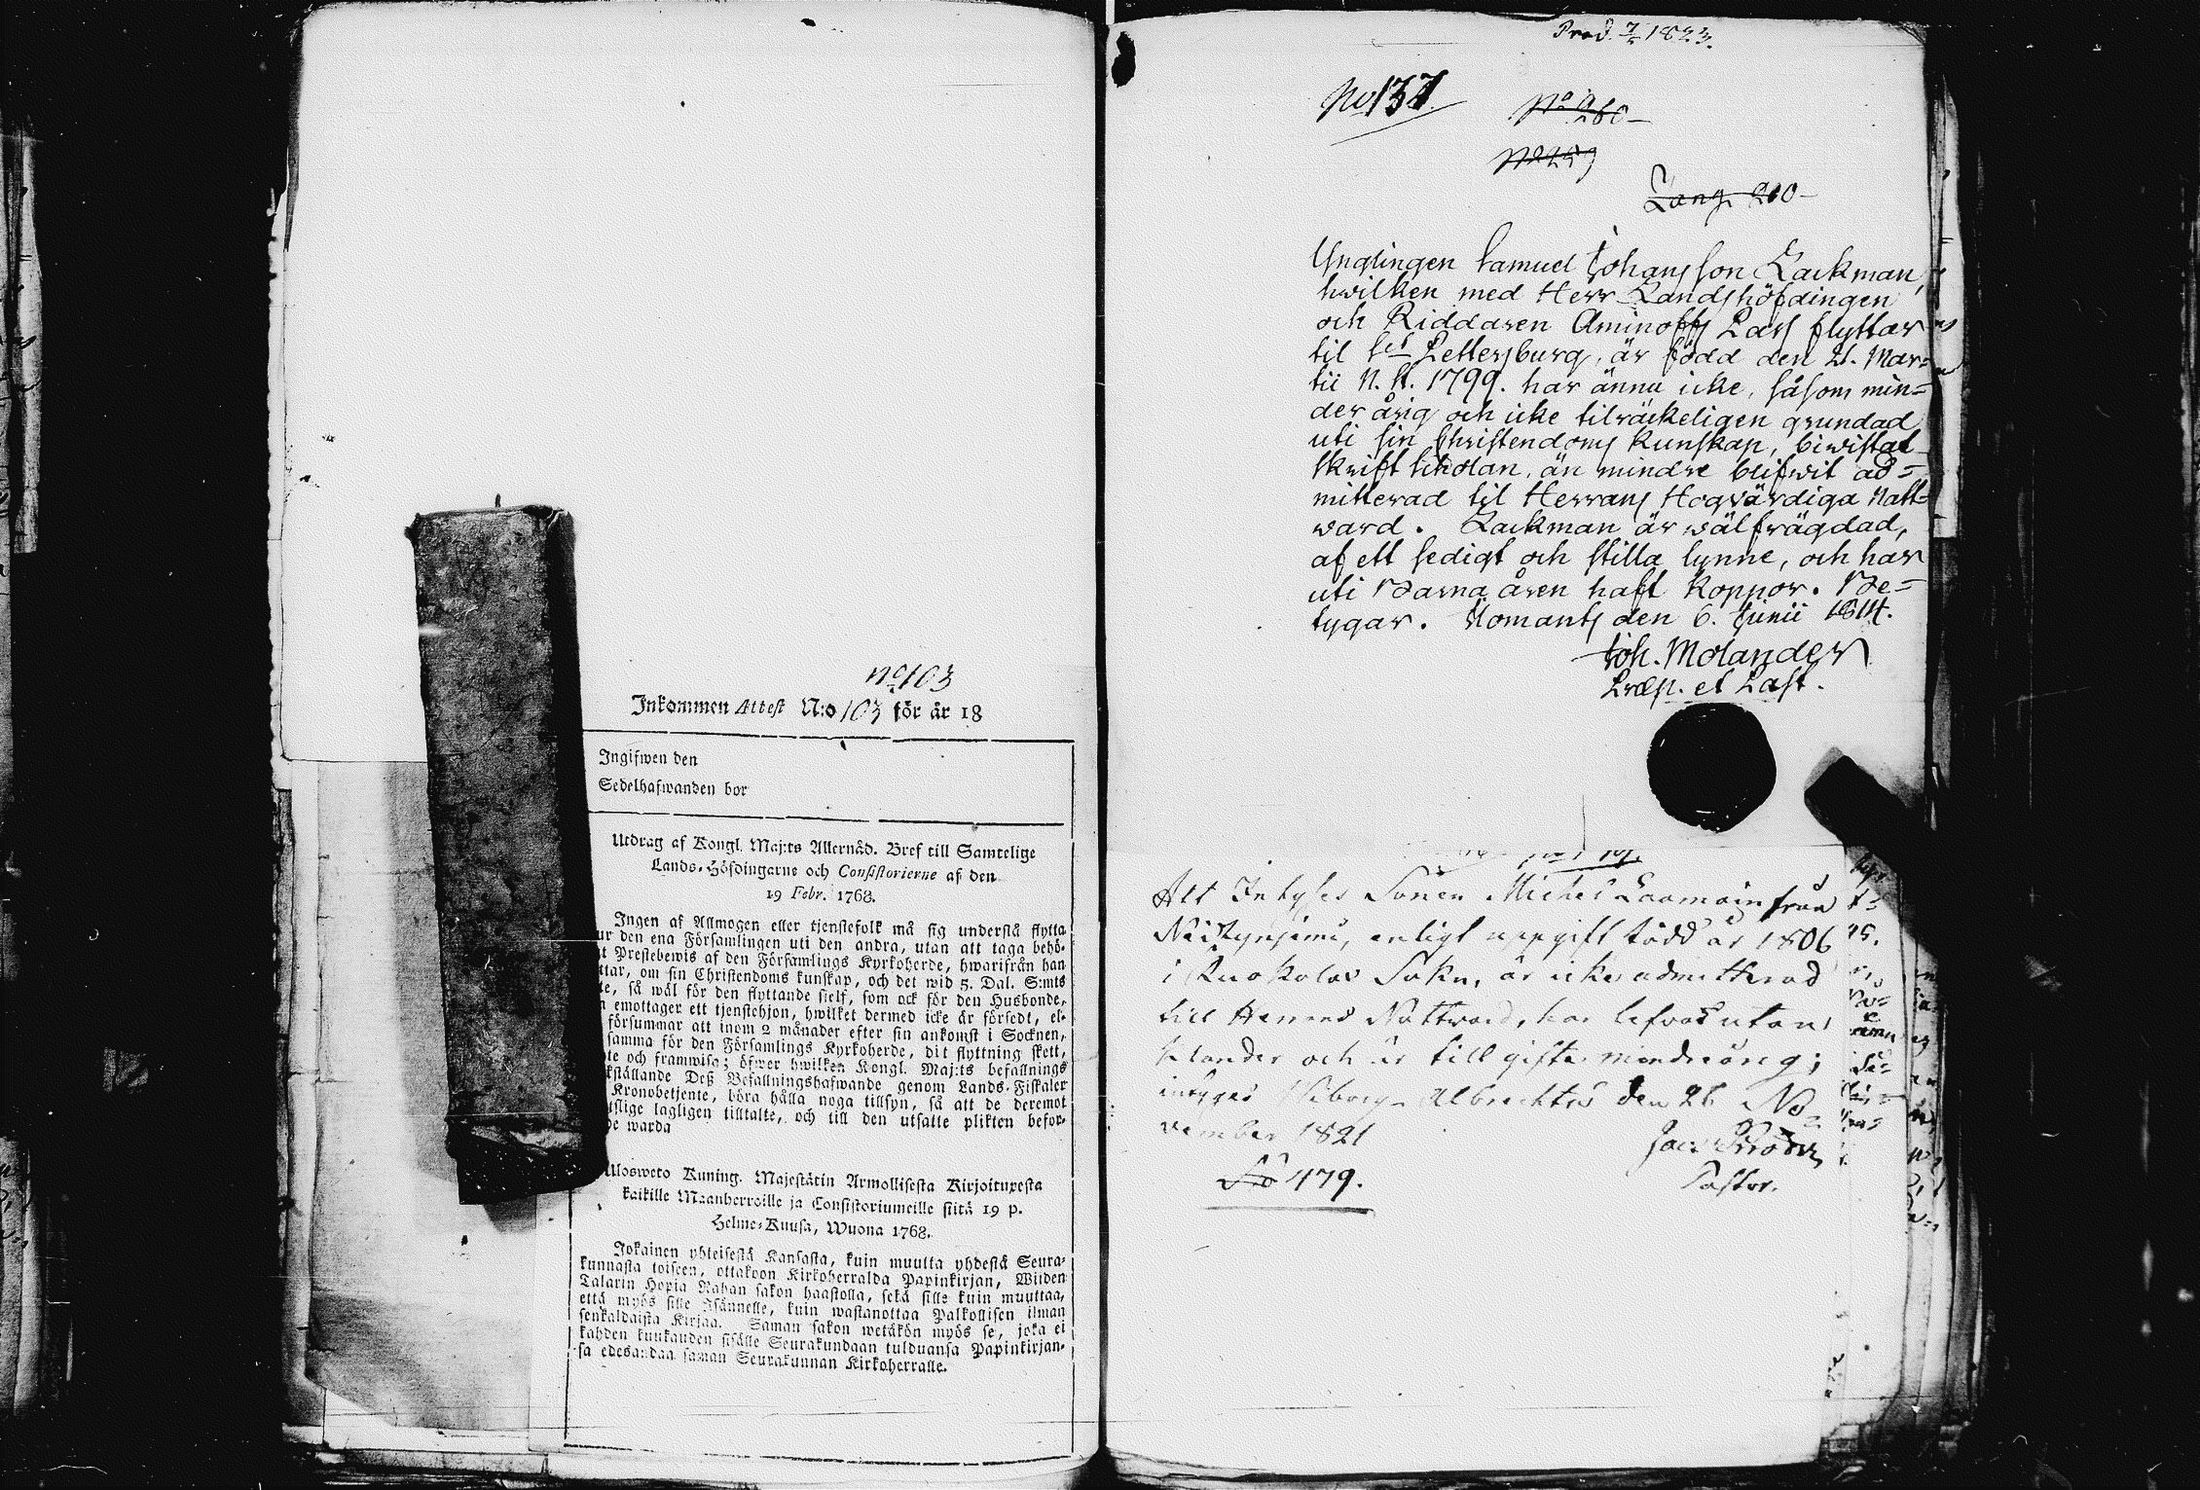 No 103
Inkommen Attest N:o 103 för år 18
Ingifwen den
Sedelhafwanden bor
Utdrag af Kongl. Maj:ts Allernåd. Bref till Samtelige
Lands-Höfdingarne och Consistorierne af den
19 Febr. 1768.
Ingen af Allmogen eller tjenstefolk må sig understå flytta
ur den ena Församlingen uti den andra, utan att taga behö-
t Prestebewis af den Församlings Kyrkoherde, hwarifrån han
ttar, om sin Christendoms kunskap, och det wid 5. Dal. S:mts
te, så wäl för den flyttande sielf, som ock för den Husbonde,
n emottager ett tjenstehjon, hwilket dermed icke är försedt, el-
försummar att inom 2 månader efter sin ankomst i Socknen,
samma för den Församlings Kyrkoherde, dit flyttning skett,
te och framwisa; öfwer hwilken Kongl. Maj:ts befallnings
kställande Deß Befallningshafwande genom Lands-Fiskaler
Kronobetjente, böra hålla noga tillsyn, så att de deremot
tslige lagligen tilltalte, och till den utsatte plikten befor-
de warda
Ulosweto Kuning. Majestätin Armollisesta Kirjoituxesta
kaikille Maanherroille ja Consistoriumeille siitä 19 p.
Helme-Kuusa, Wuona 1768.
Jokainen yhteisestä Kansasta, kuin muutta yhdestä Seura-
kunnasta toiseen, ottakoon Kirkoherralda Papinkirjan, Wiiden
Talarin Hopia Rahan sakon haastolla, sekä sille kuin muuttaa,
että myös sille Isännelle, kuin wastanottaa Palkollisen ilman
senkaldaista Kirjaa. Saman sakon wetäkön myös se, joka ei
kahden kuukauden sisälle Seurakundaan tulduansa Papinkirjan-
sa edesandaa saman Seurakunnan Kirkoherralle.
Prod. 7/5 1823.
No 137.
No 260
No 259
Lang. 200
Ynglingen Samuel Johansson Lackman,
hwilken med Herr Landshöfdingen
och Riddaren Aminoffs Pass flyttar
til S:t Pettersburg, är född den 21. Mar-
tii N. St. 1799. har ännu icke, såsom min-
der årig och icke tilräckeligen grundad
uti sin Christendoms Kunskap, biwistat
Skriftscholan, än mindre blifwit ad-
mitterad til Herrans Högvärdiga Natt-
ward. Lackman är wälfrägdad,
af ett sedigt och stilla lynne, och har
uti Barna åren haft Koppor. Be-
tygar. Ilomants den 6. Junii 1814.
Joh. Molander
Præp. et Past.
Att Inhyses Sonen Michel Laamain från
enligt uppgift född år 1806
i Ruokolax Sokn, är icke admitterad
till Herrans Nattward, har lefwat utan
klander och är till gifte minderårig;
intygas Wiborg Albrechts den 26 No-
vember 1821
Pastor.
No 479.